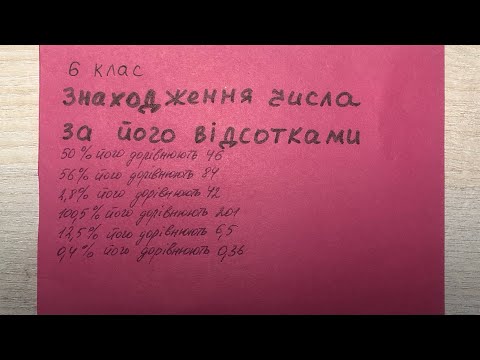 6 клас
Знаходження числа
за його відсотками
50% його дорівнюють 46
56% його дорівнюють 84
4,8% його дорівнюють 12
100,5% його дорівнюють 201
12,5% його дорівнюють 6,5
0,4% його дорівнюють 0,36